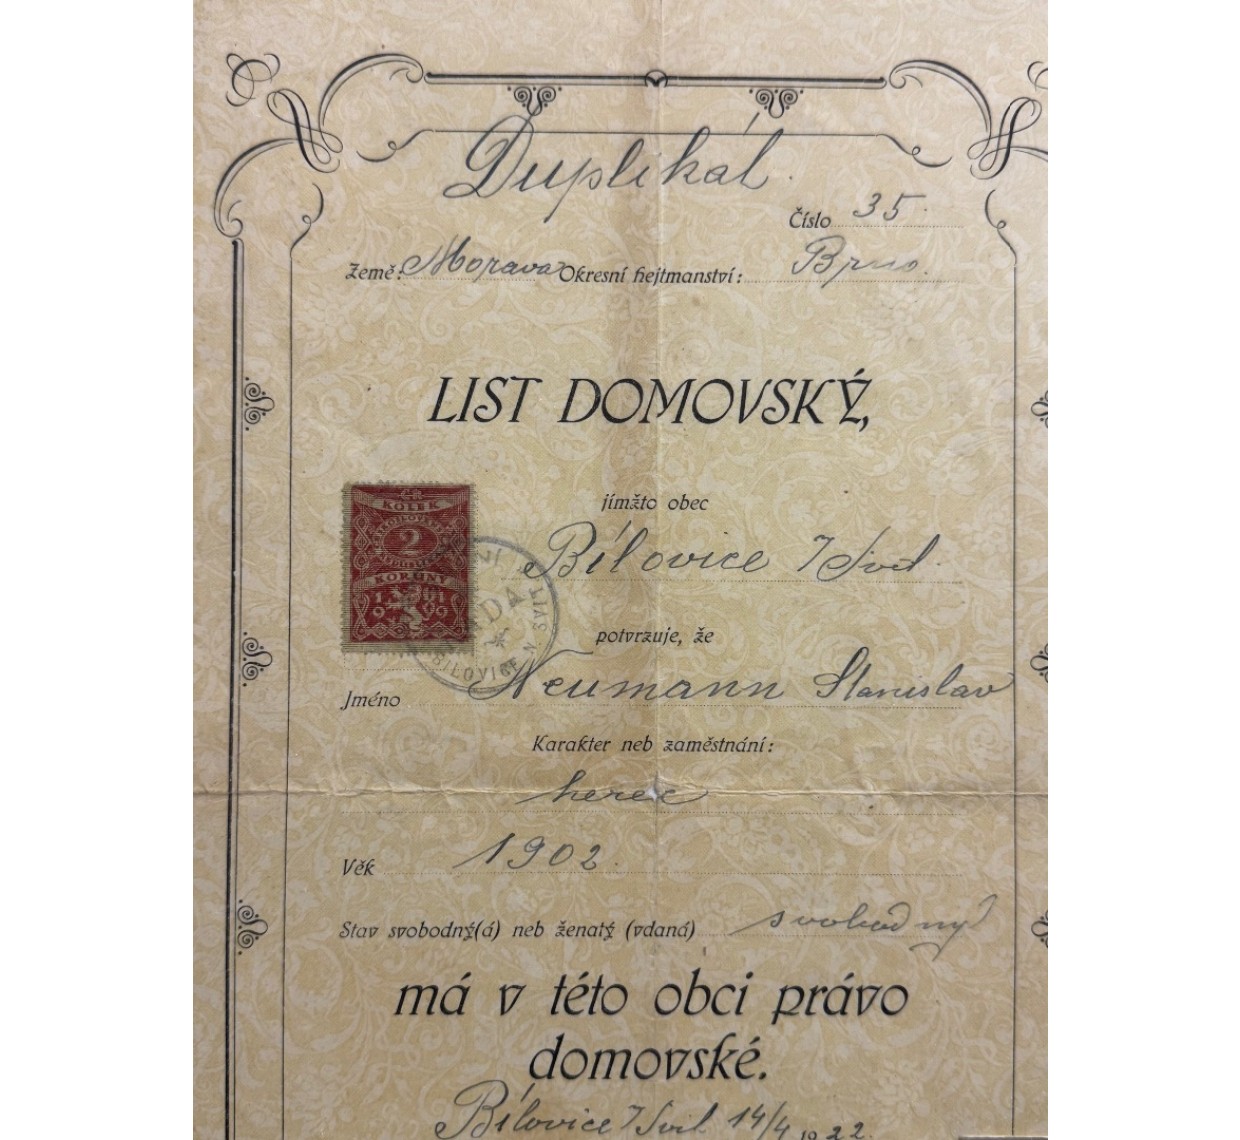 Duplikát.
Číslo 35.
Země: Morava Okresní hejtmanství: Brno.
LIST DOMOVSKÝ,
jímžto obec
Bílovice /Svit.
potvrzuje, že
Jméno Neumann Stanislav
Karakter neb zaměstnání:
herec
Věk 1902.
Stav svobodný(á) neb ženatý (vdaná) svobodný
má v této obci právo
domovské.
Bílovice /Svit 14/4 1922.
KOLEK
2
KORUNY
1919
BÍLOVICE N. SVIT